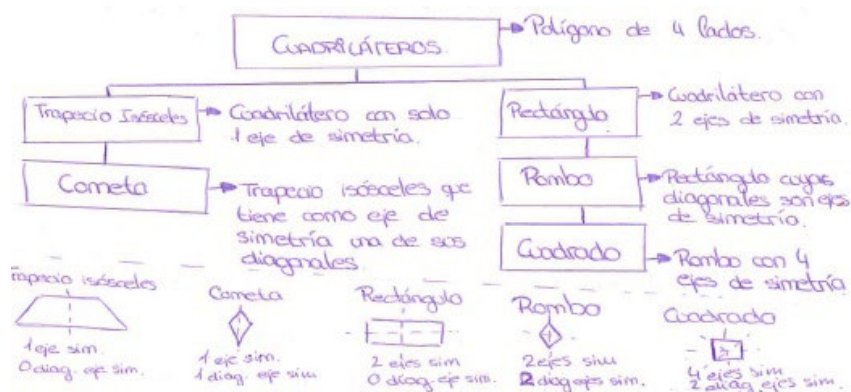 CUADRILÁTEROS.
Polígono de 4 lados.
Trapecio Isósceles
Cuadrilátero con solo
1 eje de simetría.
Cometa
Trapecio isósceles que
tiene como eje de
simetría una de sus
diagonales.
Rectángulo
Cuadrilátero con
2 ejes de simetría.
Rombo
Rectángulo cuyas
diagonales son ejes
de simetría.
Cuadrado
Rombo con 4
ejes de simetría
Trapecio isósceles
1 eje sim.
0 diag. eje sim.
Cometa
1 eje sim.
1 diag. eje sim
Rectángulo
2 ejes sim
0 diag. eje sim.
Rombo
2 ejes sim
2 diag ejes sim.
Cuadrado
4 ejes sim
2 diag. ejes sim.